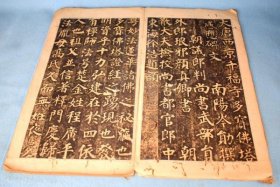 大唐西京千福寺多寶佛塔
感應碑文 南陽岑勛撰
朝議郎判尚書武部員
外郎琅邪顏真卿書 朝
散大夫撿校尚書都官郎中
東海徐浩題額
粵妙法蓮華諸佛之秘藏也
多寶佛塔證經之踊現也發
明資乎十力弘建在於四依
有禪師法号楚金姓程廣平
人也祖父並信著釋門慶歸
法胤母高氏久而無姙夜